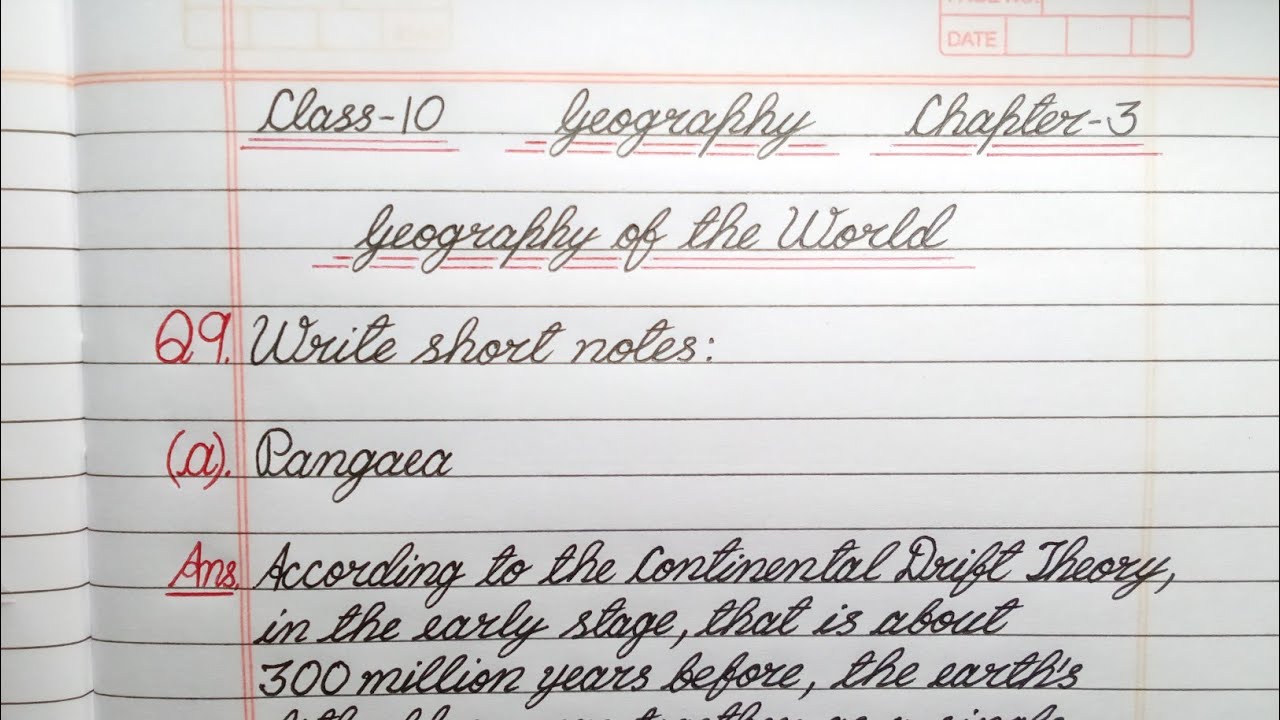 PAGE NO.
DATE
Class-10 Geography Chapter-3
Geography of the World
Q9. Write short notes:
(a). Pangaea
Ans. According to the Continental Drift Theory,
in the early stage, that is about
300 million years before, the earth's